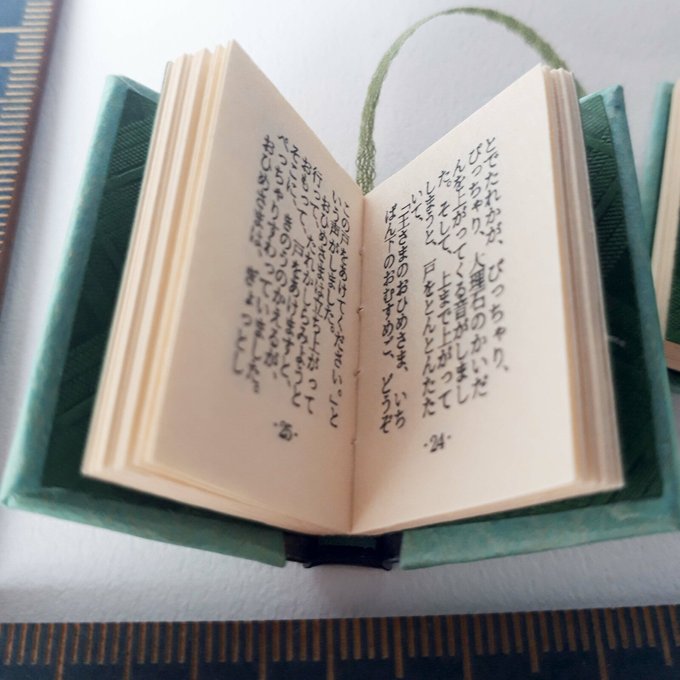 とでたれかが、ぴっちゃり、
ぴっちゃり、大理石のかいだ
んを上がってくる音がしまし
た。そして、上まで上がって
しまうと、戸をとんとんたた
いて、
「王さまのおひめさま、いち
ばん下のおむすめご、どうぞ
·24·
この戸をあけてください。」と
いう声がしました。
おひめさまは立ち上がって
行って、
おもって、戸をあけますと、
そこに、きのうのかえるが、
ぺっちゃりすわっていました。
おひめさまは、ぎょっとし
·25·